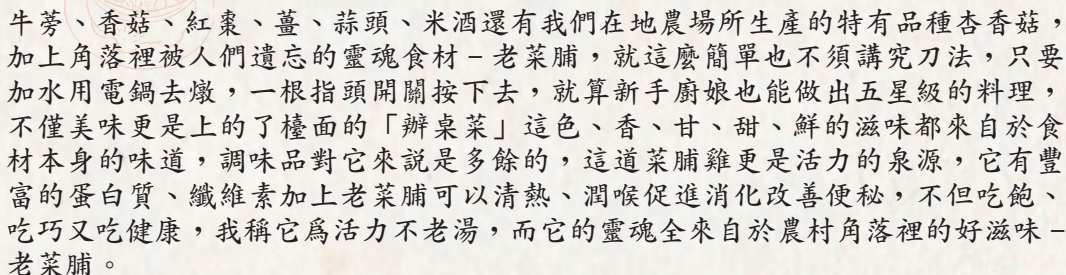 牛蒡、香菇、紅棗、薑、蒜頭、米酒還有我們在地農場所生產的特有品種杏香菇，
加上角落裡被人們遺忘的靈魂食材－老菜脯，就這麼簡單也不須講究刀法，只要
加水用電鍋去燉，一根指頭開關按下去，就算新手廚娘也能做出五星級的料理，
不僅美味更是上的了檯面的「辦桌菜」這色、香、甘、甜、鮮的滋味都來自於食
材本身的味道，調味品對它來說是多餘的，這道菜脯雞更是活力的泉源，它有豐
富的蛋白質、纖維素加上老菜脯可以清熱、潤喉促進消化改善便秘，不但吃飽、
吃巧又吃健康，我稱它爲活力不老湯，而它的靈魂全來自於農村角落裡的好滋味－
老菜脯。